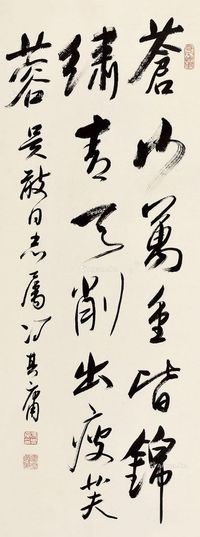 蒼山萬重皆錦
繡青天削出瘦芙
蓉 吳敢同志屬 馮其庸